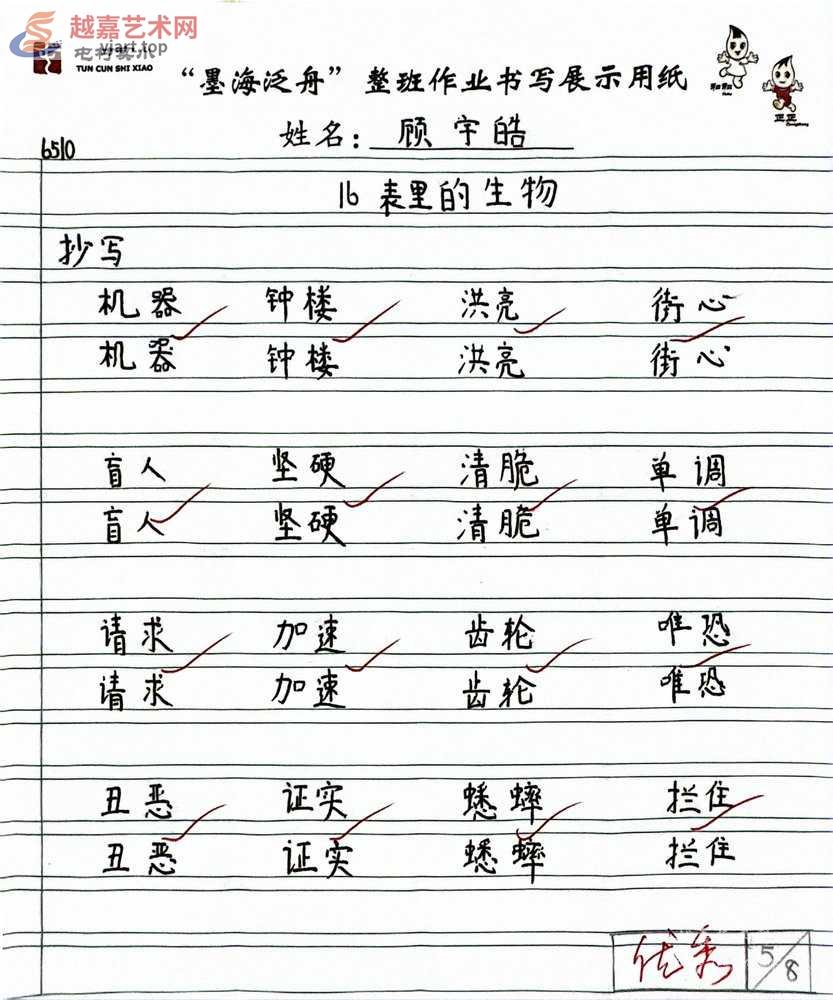 越嘉艺术网
yjart.top
屯村实小
TUN CUN SHI XIAO
“墨海泛舟”整班作业书写展示用纸
和和
正正
姓名：顾宇皓
6510
16 表里的生物
抄写
机器 钟楼 洪亮 街心
机器 钟楼 洪亮 街心
盲人 坚硬 清脆 单调
盲人 坚硬 清脆 单调
请求 加速 齿轮 唯恐
请求 加速 齿轮 唯恐
丑恶 证实 蟋蟀 拦住
丑恶 证实 蟋蟀 拦住
优秀 5/8